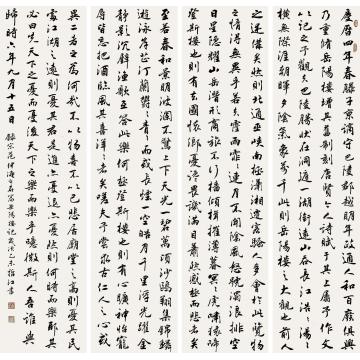 慶曆四年春滕子京謫守巴陵郡越明年政通人和百廢俱興
乃重修岳陽樓增其舊制刻唐賢今人詩賦于其上屬予作文
以記之予觀夫巴陵勝狀在洞庭一湖銜遠山吞長江浩浩湯湯
橫無際涯朝暉夕陰氣象萬千此則岳陽樓之大觀也前人
之述備矣然則北通巫峽南極瀟湘遷客騷人多會于此覽物
之情得無異乎若夫霪雨霏霏連月不開陰風怒號濁浪排空
日星隱耀山岳潛形商旅不行檣傾楫摧薄暮冥冥虎嘯猿啼
登斯樓也則有去國懷鄉憂讒畏譏滿目蕭然感極而悲者矣
至若春和景明波瀾不驚上下天光一碧萬頃沙鷗翔集錦鱗
游泳岸芷汀蘭鬱鬱青青而或長煙一空皓月千里浮光躍金
靜影沉璧漁歌互答此樂何極登斯樓也則有心曠神怡寵
辱皆忘把酒臨風其喜洋洋者矣嗟夫予嘗求古仁人之心或
異二者之為何哉不以物喜不以己悲居廟堂之高則憂其民
處江湖之遠則憂其君是進亦憂退亦憂然則何時而樂耶其
必曰先天下之憂而憂後天下之樂而樂乎噫微斯人吾誰與
歸時六年九月十五日